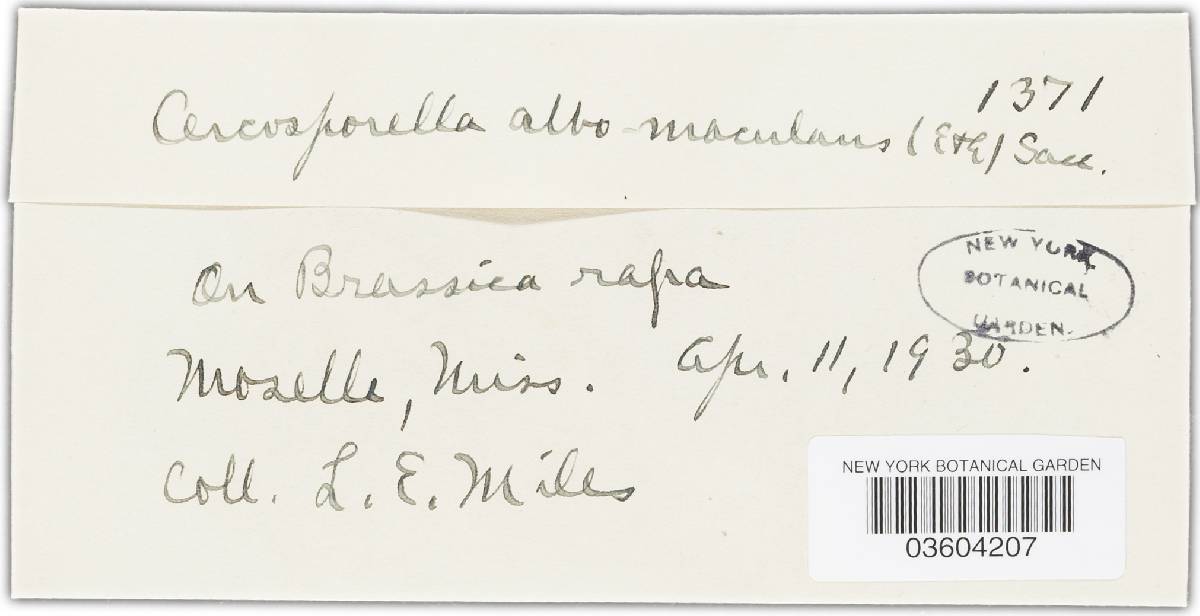 1371
Cercosporella albo-maculans (E+E) Sacc.
On Brassica rapa
NEW YORK
BOTANICAL
GARDEN.
Moselle, Miss. Apr. 11, 1930.
Coll. L. E. Miles
NEW YORK BOTANICAL GARDEN
03604207